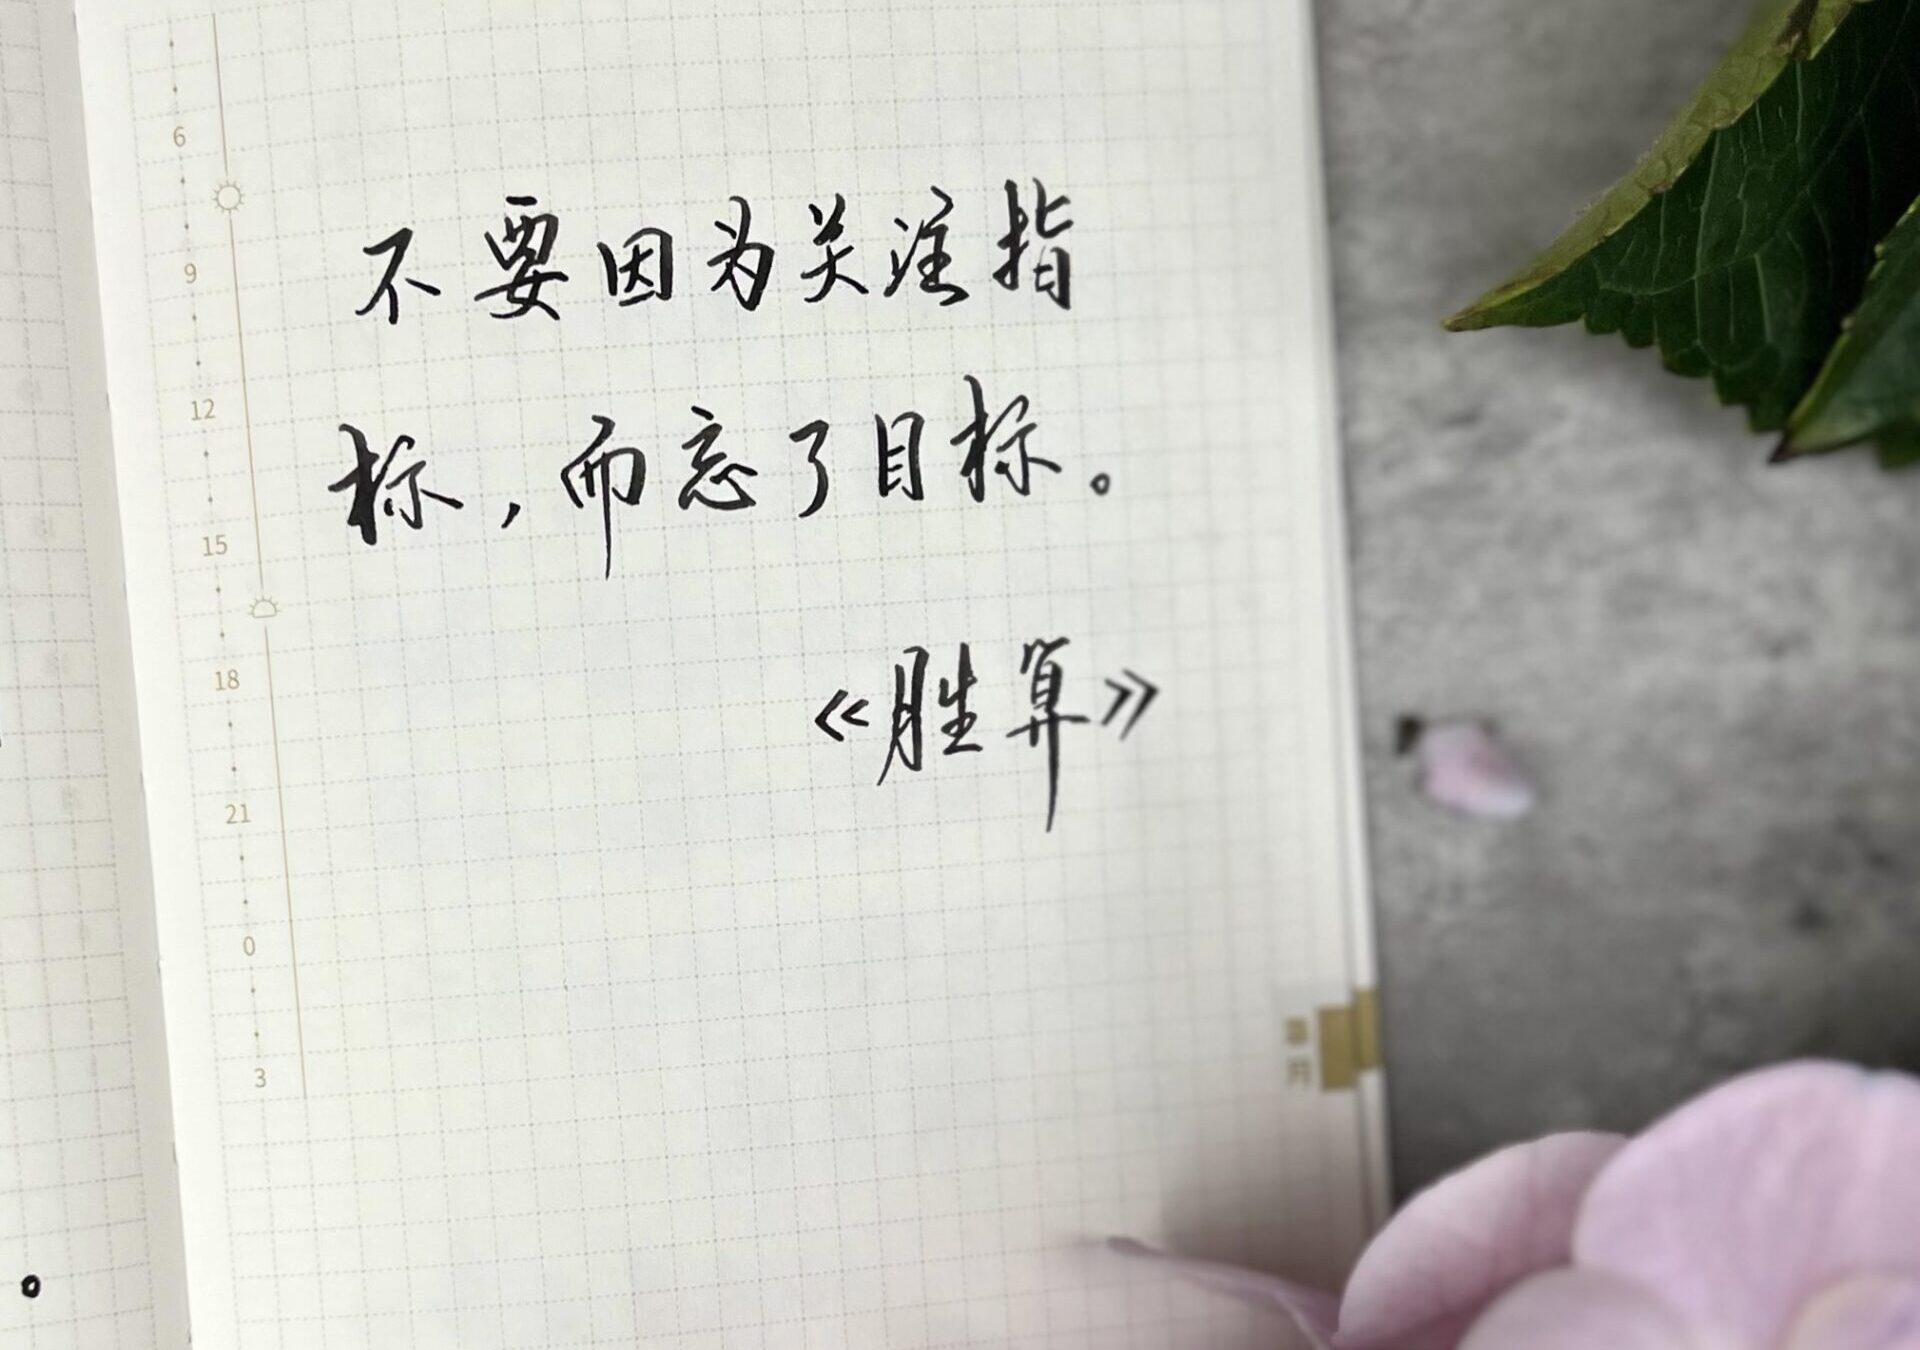 不要因为关注指
标，而忘了目标。
《胜算》
6
9
12
15
18
21
0
3